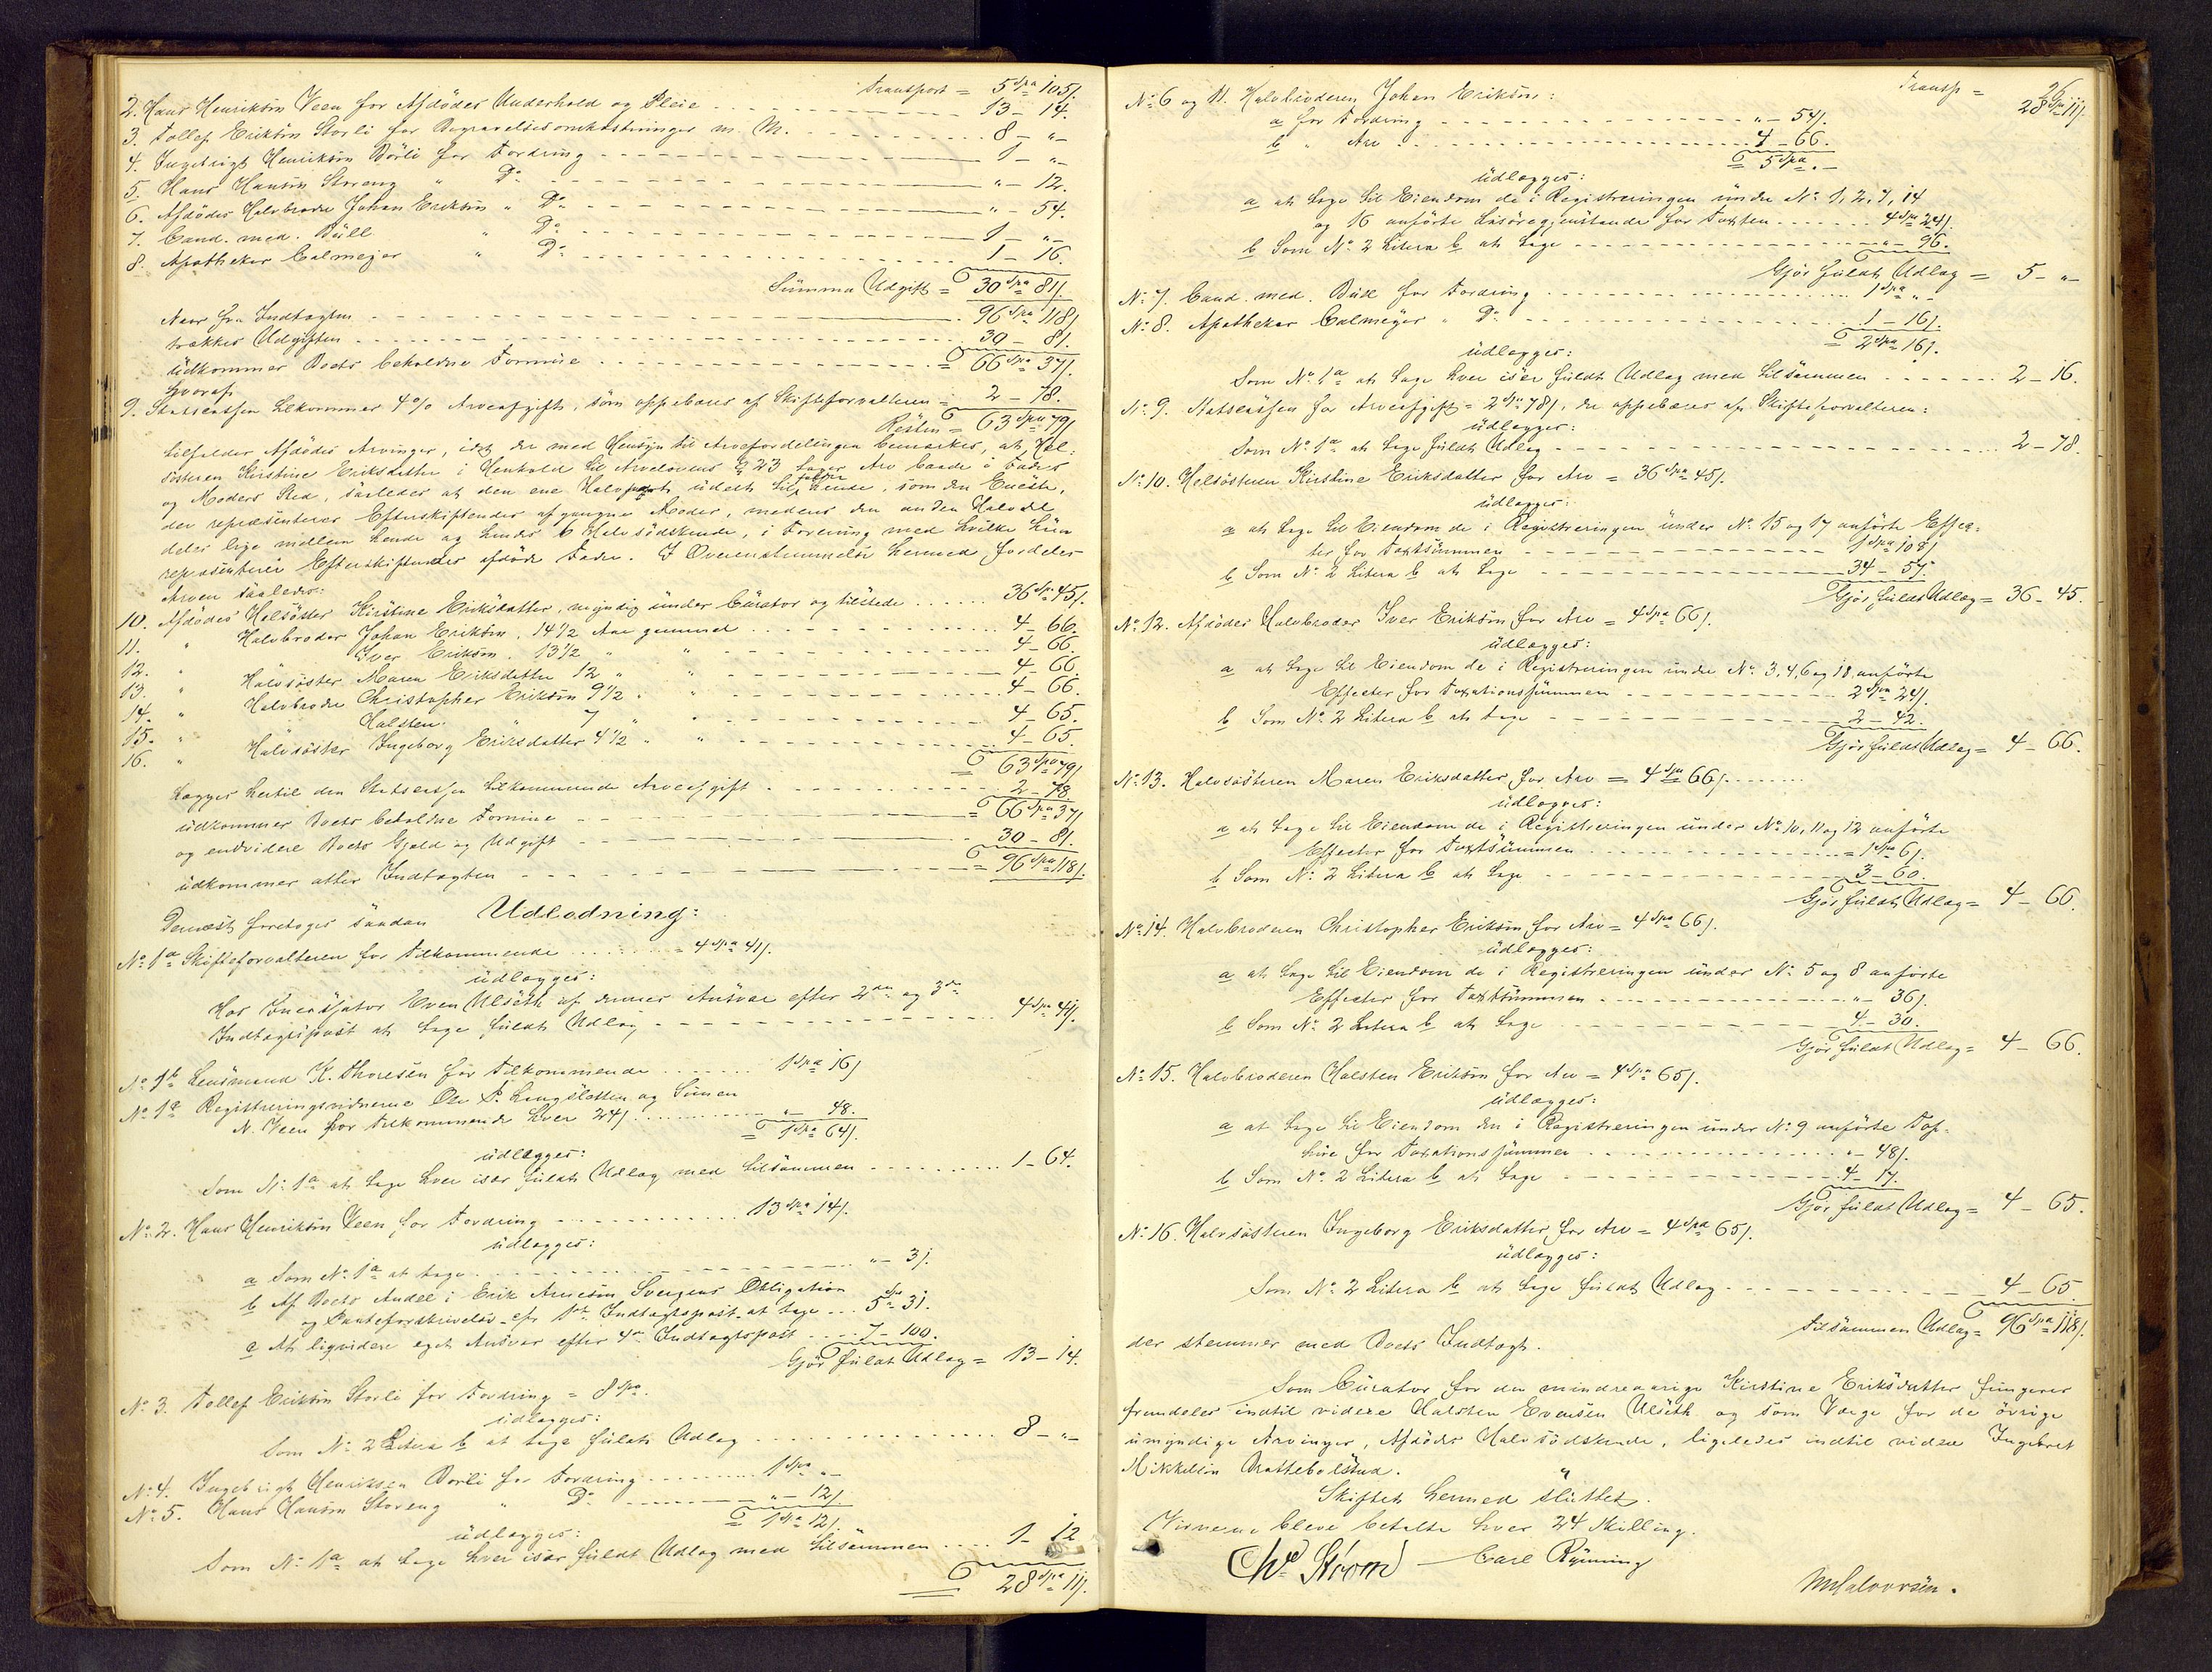 Transport = 5 Spd 105 /.
2. Hans Henriksøn Veen for Afdødes Underhold og Pleie 13 - 14.
3. Tollef Eriksøn Storli for Begravelsesomkostninger m. M. 8 - "-
4. Ingebrigt Henriksøn Børli for Fordring 1 - "-
5. Hans Hansøn Storeng " Do " - 12.
6. Afdødes Halvbroder Johan Eriksøn " Do " - 54.
7. Cand. med. Büll " Do 1 - "-
8. Apotheker Calmeyer " Do 1 - 16.
Summa Udgift = 30 Spd 81 /.
Naar fra Indtægten 96 Spd 118 /
trækkes Udgiften 30 - 81.
udkommer Boets beholdne Formue = 66 Spd 37 /.
Hvoraf
9. Statscassen tilkommer 4 % Arveafgift, som oppebæres af Skifteforvalteren = 2 - 78.
Resten = 63 Spd 79 /
tilfalder Afdødes Arvinger, idet der med Hensyn til Arvefordelingen bemærkes, at Hel-
søsteren Kirstine Eriksdatter i Henhold til Arvelovens § 23 tager Arv baade i Faders
og Moders Sted, saaledes at den ene Halvpart udelt tilfalder hende, som den Eneste,
der repræsenterer Efterskiftendes afgangne Moder, medens den anden Halvdel
deles lige mellem hende og hendes 6 Halvsødskende, i Forening med hvilke hun
repræsenterer Efterskiftendes afdøde Fader. I Overensstemmelse hermed fordeles
Arven saaledes:
10. Afdødes Helsøster Kirstine Eriksdatter, myndig under Curator og tilstede 36 Spd 45 /.
11. " Halvbroder Johan Eriksøn, 14 1/2 Aar gammel 4 - 66.
12. " Iver Eriksøn, 13 1/2 " " 4 - 66.
13. " Halvsøster Maren Eriksdatter 12 " " 4 - 66
14. " Halvbroder Christopher Eriksøn 9 1/2 " " 4 - 66.
15. " Halsten " 7 " " 4 - 65.
16. " Halvsøster Ingeborg Eriksdatter 4 1/2 " " 4 - 65.
= 63 Spd 79 /
Lægges hertil den Statscassen tilkommende Arveafgift 2 - 78
udkommer Boets beholdne Formue = 66 Spd 37 /
og endvidere Boets Gjæld og Udgift 30 - 81.
udkommer atter Indtægten = 96 Spd 118 /.
Dernæst foretoges saadan Udlodning:
No 1a Skifteforvalteren for Tilkommende 4 Spd 41 /.
udlægges:
Hos Incassator Even Ulseth af dennes Ansvar efter 2den og 3die
Indtægtspost at tage fuldt Udlæg 4 Spd 41 /.
No 1b Lensmand K. Thoresen for Tilkommende 1 Spd 16 /
No 1c Registreringsvidnerne Ole P. Lengsletten og Simen
N. Veen for Tilkommende hver 24 / " - 48.
= 1 Spd 64 /.
udlægges:
Som No 1a at tage hver især fuldt Udlæg med tilsammen 1 - 64.
No 2. Hans Henriksøn Veen for Fordring 13 Spd 14 /.
udlægges:
a Som No 1a at tage " - 3 /.
b Af Boets Andel i Erik Arnesøn Svergens Obligation
og Panteforskrivelse efr 1ste Indtægtspost at tage 5 Spd 31.
c At liqvidere eget Ansvar efter 4de Indtægtspost 7 - 100.
Gjør fuldt Udlæg = 13 - 14.
No 3. Tollef Eriksøn Storli for Fordring = 8 Spd.
udlægges:
Som No 2 Litera b at tage fuldt Udlæg 8 - "-
No 4. Ingebrigt Henriksen Børli for Fordring 1 Spd "-
No 5. Hans Hansøn Storeng " Do " - 12 /.
= 1 Spd 12 /.
udlægges:
Som No 1a at tage hver især fuldt Udlæg med tilsammen 1 - 12
28 Spd 11 /.
Transp = 28 Spd 11 /.
No 6 og 11. Halvbroderen Johan Eriksøn:
a for Fordring " - 54 /.
b " Arv 4 - 66.
= 5 Spd. -
udlægges:
a at tage til Eiendom de i Registreringen under No 1, 2, 7, 14
og 16 anførte Løsøregjenstande for Taxten 4 Spd 24 /.
b Som No 2 Litera b at tage " - 96.
Gjør fuldt Udlæg = 5 - "-
No 7. Cand. med. Büll for Fordring 1 Spd "-
No 8. Apotheker Calmeyer " Do 1 - 16 /.
= 2 Spd 16 /.
udlægges:
Som No 1a at tage hver især fuldt Udlæg med tilsammen 2 - 16.
No 9. Statscassen for Arveafgift = 2 Spd 78 /, der oppebæres af Skifteforvalteren:
udlægges:
Som No 1a at tage fuldt Udlæg 2 - 78.
No 10. Helsøsteren Kirstine Eriksdatter for Arv = 36 Spd 45 /.
udlægges:
a at tage til Eiendom de i Registreringen under No 15 og 17 anførte Effec-
ter for Taxtsummen 1 Spd 108 /
b Som No 2 Litera b at tage 34 - 57.
Gjør fuldt Udlæg = 36 - 45.
No 12. Afdødes Halvbroder Iver Eriksøn for Arv = 4 Spd 66 /.
udlægges:
a at tage til Eiendom de i Registreringen under No 3, 4, 6 og 18 anførte
Effecter for Taxationssummen 2 Spd 24 /.
b Som No 2 Litera b at tage 2 - 42.
Gjør fuldt Udlæg = 4 - 66.
No 13. Halvsøsteren Maren Eriksdatter for Arv = 4 Spd 66 /.
udlægges:
a at tage til Eiendom de i Registreringen under No 10, 11 og 12 anførte
Effecter for Taxtsummen = 1 Spd 6 /.
b Som No 2 Litera b at tage 3 - 60.
Gjør fuldt Udlæg = 4 - 66.
No 14. Halvbroderen Christopher Eriksøn for Arv = 4 Spd 66 /.
udlægges:
a at tage til Eiendom de i Registreringen under No 5 og 8 anførte
Effecter for Taxtsummen " - 36 /.
b Som No 2 Litera b at tage 4 - 30.
Gjør fuldt Udlæg = 4 - 66.
No 15. Halvbroderen Halsten Eriksøn for Arv = 4 Spd 65 /.
udlægges:
a at tage til Eiendom den i Registreringen under No 9 anførte Top-
hue for Taxationssummen " - 48 /.
b Som No 2 Litera b at tage 4 - 17.
Gjør fuldt Udlæg = 4 - 65.
No 16. Halvsøsteren Ingeborg Eriksdatter for Arv = 4 Spd 65 /.
udlægges:
Som No 2 Litera b at tage fuldt Udlæg 4 - 65
Tilsammen Udlæg = 96 Spd 118 /.
der stemmer med Boets Indtægt.
Som Curator for den mindreaarige Kirstine Eriksdatter fungerer
fremdeles indtil videre Halsten Evensen Ulseth og som Værge for de øvrige
umyndige Arvinger, Afdødes Halvsødskende, ligeledes indtil videre Ingebret
Mikkelsøn Brattebolstad.
Skiftet hermed sluttet.
Vidnerne bleve betalte hver 24 Skilling.
Chr Strøm Carl Rynning
M Halvorsen.